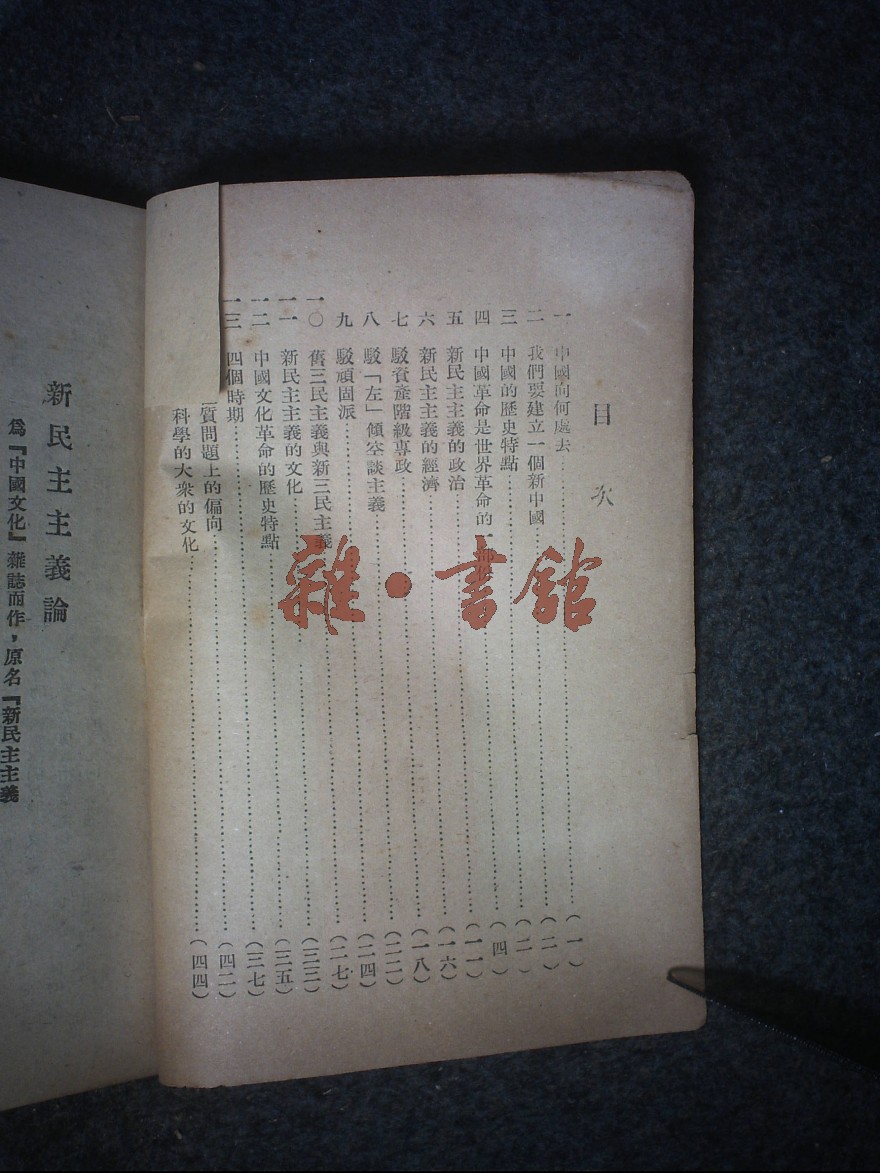 目次
一 中國向何處去……(一)
二 我們要建立一個新中國……(二)
三 中國的歷史特點……(二)
四 中國革命是世界革命的一部份……(四)
五 新民主主義的政治……(一一)
六 新民主主義的經濟……(一六)
七 駁資產階級專政……(一八)
八 駁「左」傾空談主義……(二二)
九 駁頑固派……(二四)
一〇 舊三民主義與新三民主義……(二七)
一一 新民主主義的文化……(三三)
一二 中國文化革命的歷史特點……(三五)
一三 四個時期……(三七)
質問題上的偏向……(四二)
科學的大衆的文化……(四四)
新民主主義論
爲『中國文化』雜誌而作，原名『新民主主義
雜·書館